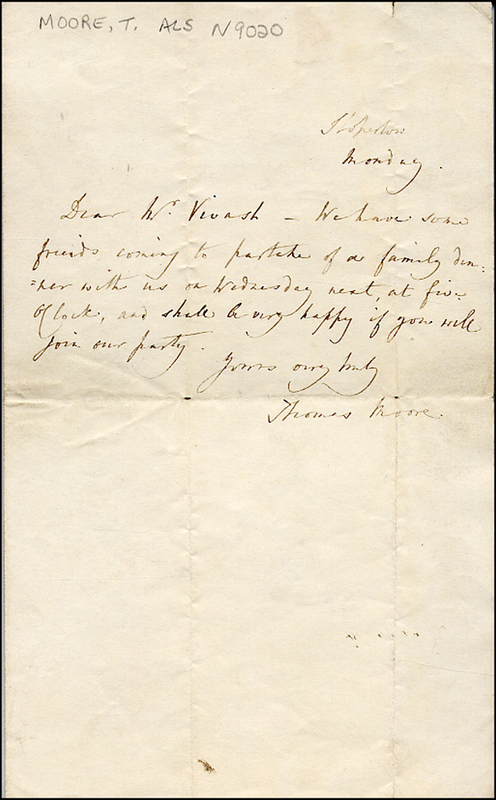 MOORE, T. ALS N9020
Sloperton
Monday.
Dear Mr. Vivash – We have some
friends coming to partake of a family din-
=ner with us on Wednesday next, at five
o'Clock, and shall be very happy if you will
join our party.
Yours very truly
Thomas Moore.